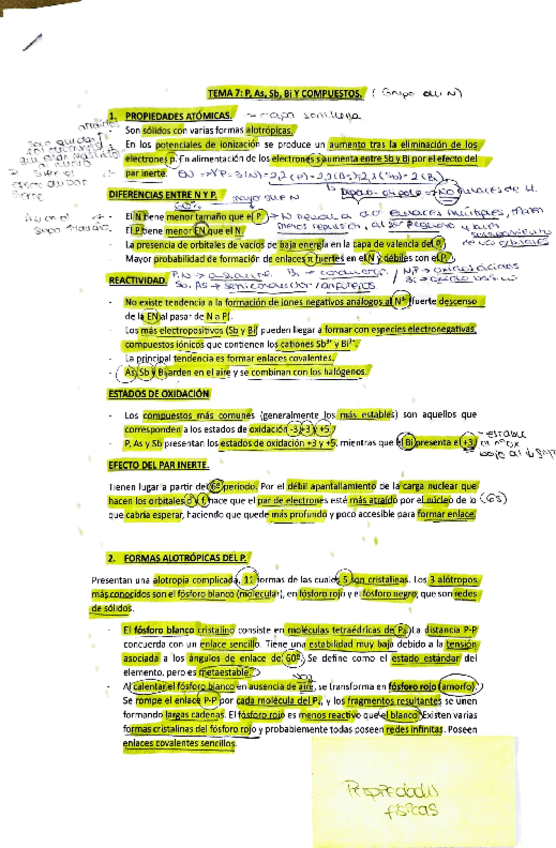 TEMA 7: P, As, Sb, Bi Y COMPUESTOS. (Grupo del N)
1. PROPIEDADES ATÓMICAS.
- Son sólidos con varias formas alotrópicas.
- En los potenciales de ionización se produce un aumento tras la eliminación de los
electrones p. En alimentación de los electrones s aumenta entre Sb y Bi por el efecto del
par inerte.
DIFERENCIAS ENTRE N Y P.
- El N tiene menor tamaño que el P.
- El P tiene menor EN que el N.
- La presencia de orbitales de vacíos de baja energía en la capa de valencia del P.
- Mayor probabilidad de formación de enlaces π fuertes en el N y débiles con el P.
REACTIVIDAD.
- No existe tendencia a la formación de iones negativos analogos al N³⁻ (fuerte descenso
de la EN al pasar de N a P).
- Los más electropositivos (Sb y Bi) pueden llegar a formar con especies electronegativas,
compuestos iónicos que contienen los cationes Sb³⁺ y Bi³⁺.
- La principal tendencia es formar enlaces covalentes.
- As, Sb y Bi arden en el aire y se combinan con los halógenos.
ESTADOS DE OXIDACIÓN
- Los compuestos más comunes (generalmente los más estables) son aquellos que
corresponden a los estados de oxidación -3, +3 y +5.
- P, As y Sb presentan los estados de oxidación +3 y +5, mientras que el Bi presenta el +3.
EFECTO DEL PAR INERTE.
Tienen lugar a partir del 6º periodo. Por el débil apantallamiento de la carga nuclear que
hacen los orbitales d y f, hace que el par de electrones esté más atraído por el núcleo de lo (6s)
que cabría esperar, haciendo que quede más profundo y poco accesible para formar enlace.
2. FORMAS ALOTRÓPICAS DEL P.
Presentan una alotropia complicada, 11 formas de las cuales 5 son cristalinas. Los 3 alótropos
más conocidos son el fósforo blanco (molecular), en fósforo rojo y el fósforo negro, que son redes
de sólidos.
- El fósforo blanco cristalino consiste en moléculas tetraédricas de P₄. La distancia P-P
concuerda con un enlace sencillo. Tiene una estabilidad muy baja debido a la tensión
asociada a los ángulos de enlace de 60º. Se define como el estado estándar del
elemento, pero es metaestable.
- Al calentar el fósforo blanco en ausencia de aire, se transforma en fósforo rojo (amorfo).
Se rompe el enlace P-P por cada molécula del P₄, y los fragmentos resultantes se unen
formando largas cadenas. El fósforo rojo es menos reactivo que el blanco. Existen varias
formas cristalinas del fósforo rojo y probablemente todas poseen redes infinitas. Poseen
enlaces covalentes sencillos.
Propiedades
físicas